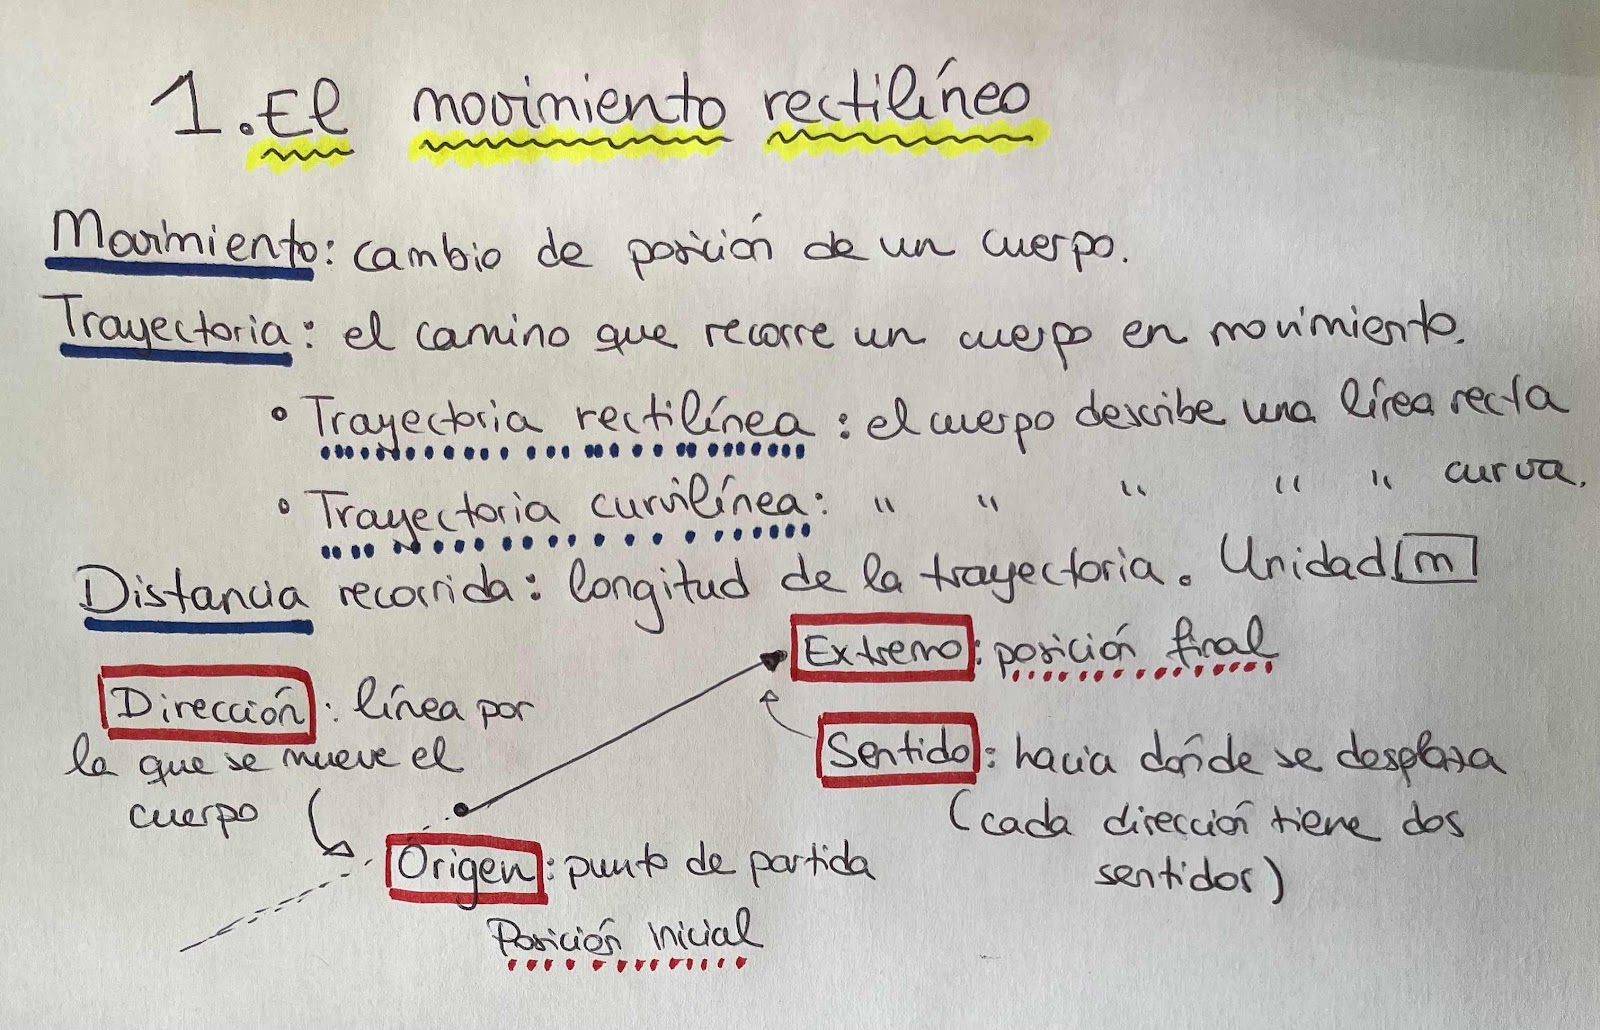 1. El movimiento rectilíneo
Movimiento: cambio de posición de un cuerpo.
Trayectoria: el camino que recorre un cuerpo en movimiento.
• Trayectoria rectilínea: el cuerpo describe una línea recta
• Trayectoria curvilínea: " " " " " curva.
Distancia recorrida: longitud de la trayectoria. Unidad m
Extremo: posición final
Dirección: línea por
la que se mueve el
cuerpo
Sentido: hacia dónde se desplaza
(cada dirección tiene dos
sentidos)
Origen: punto de partida
Posición inicial